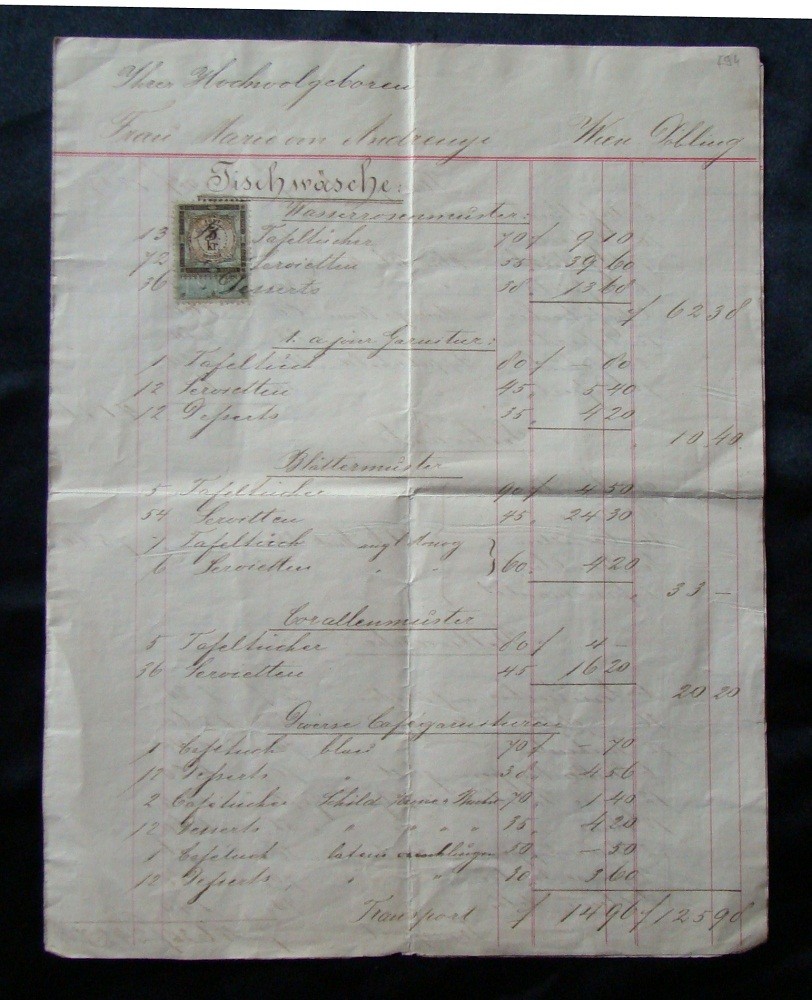 194
Ihrer Hochwolgeboren
Frau Marie von Wien Döbling
Tischwäsche:
Wasserrosenmuster:
5 kr.
13 Tafeltücher 70 f 9 10
72 Servietten " 55 " 39 60
36 " Desserts 38 " 13 68
f 62 38
1. a jour Garnitur:
1 Tafeltuch 80 f – 80
12 Servietten 45 " 5 40
12 Desserts 35 " 4 20
" 10 40
Blättermuster
5 Tafeltücher 90 f 4 50
54 Servietten 45 " 24 30
1 Tafeltuch engl Monog
6 Servietten " " } 60 " 4 20
" 33 –
Corallenmuster
5 Tafeltücher 80 f 4 –
36 Servietten 45 " 16 20
20 20
Diverse Cafégarnituren
1 Cafetuch blau 70 f – 70
12 Desserts " 38 " 4 56
2 Cafetücher Schild 70 " 1 40
12 Desserts " " " " 35 " 4 20
1 Cafetuch 50 " – 50
12 Desserts " " 30 " 3 60
Transport f 14 96 f 125 98